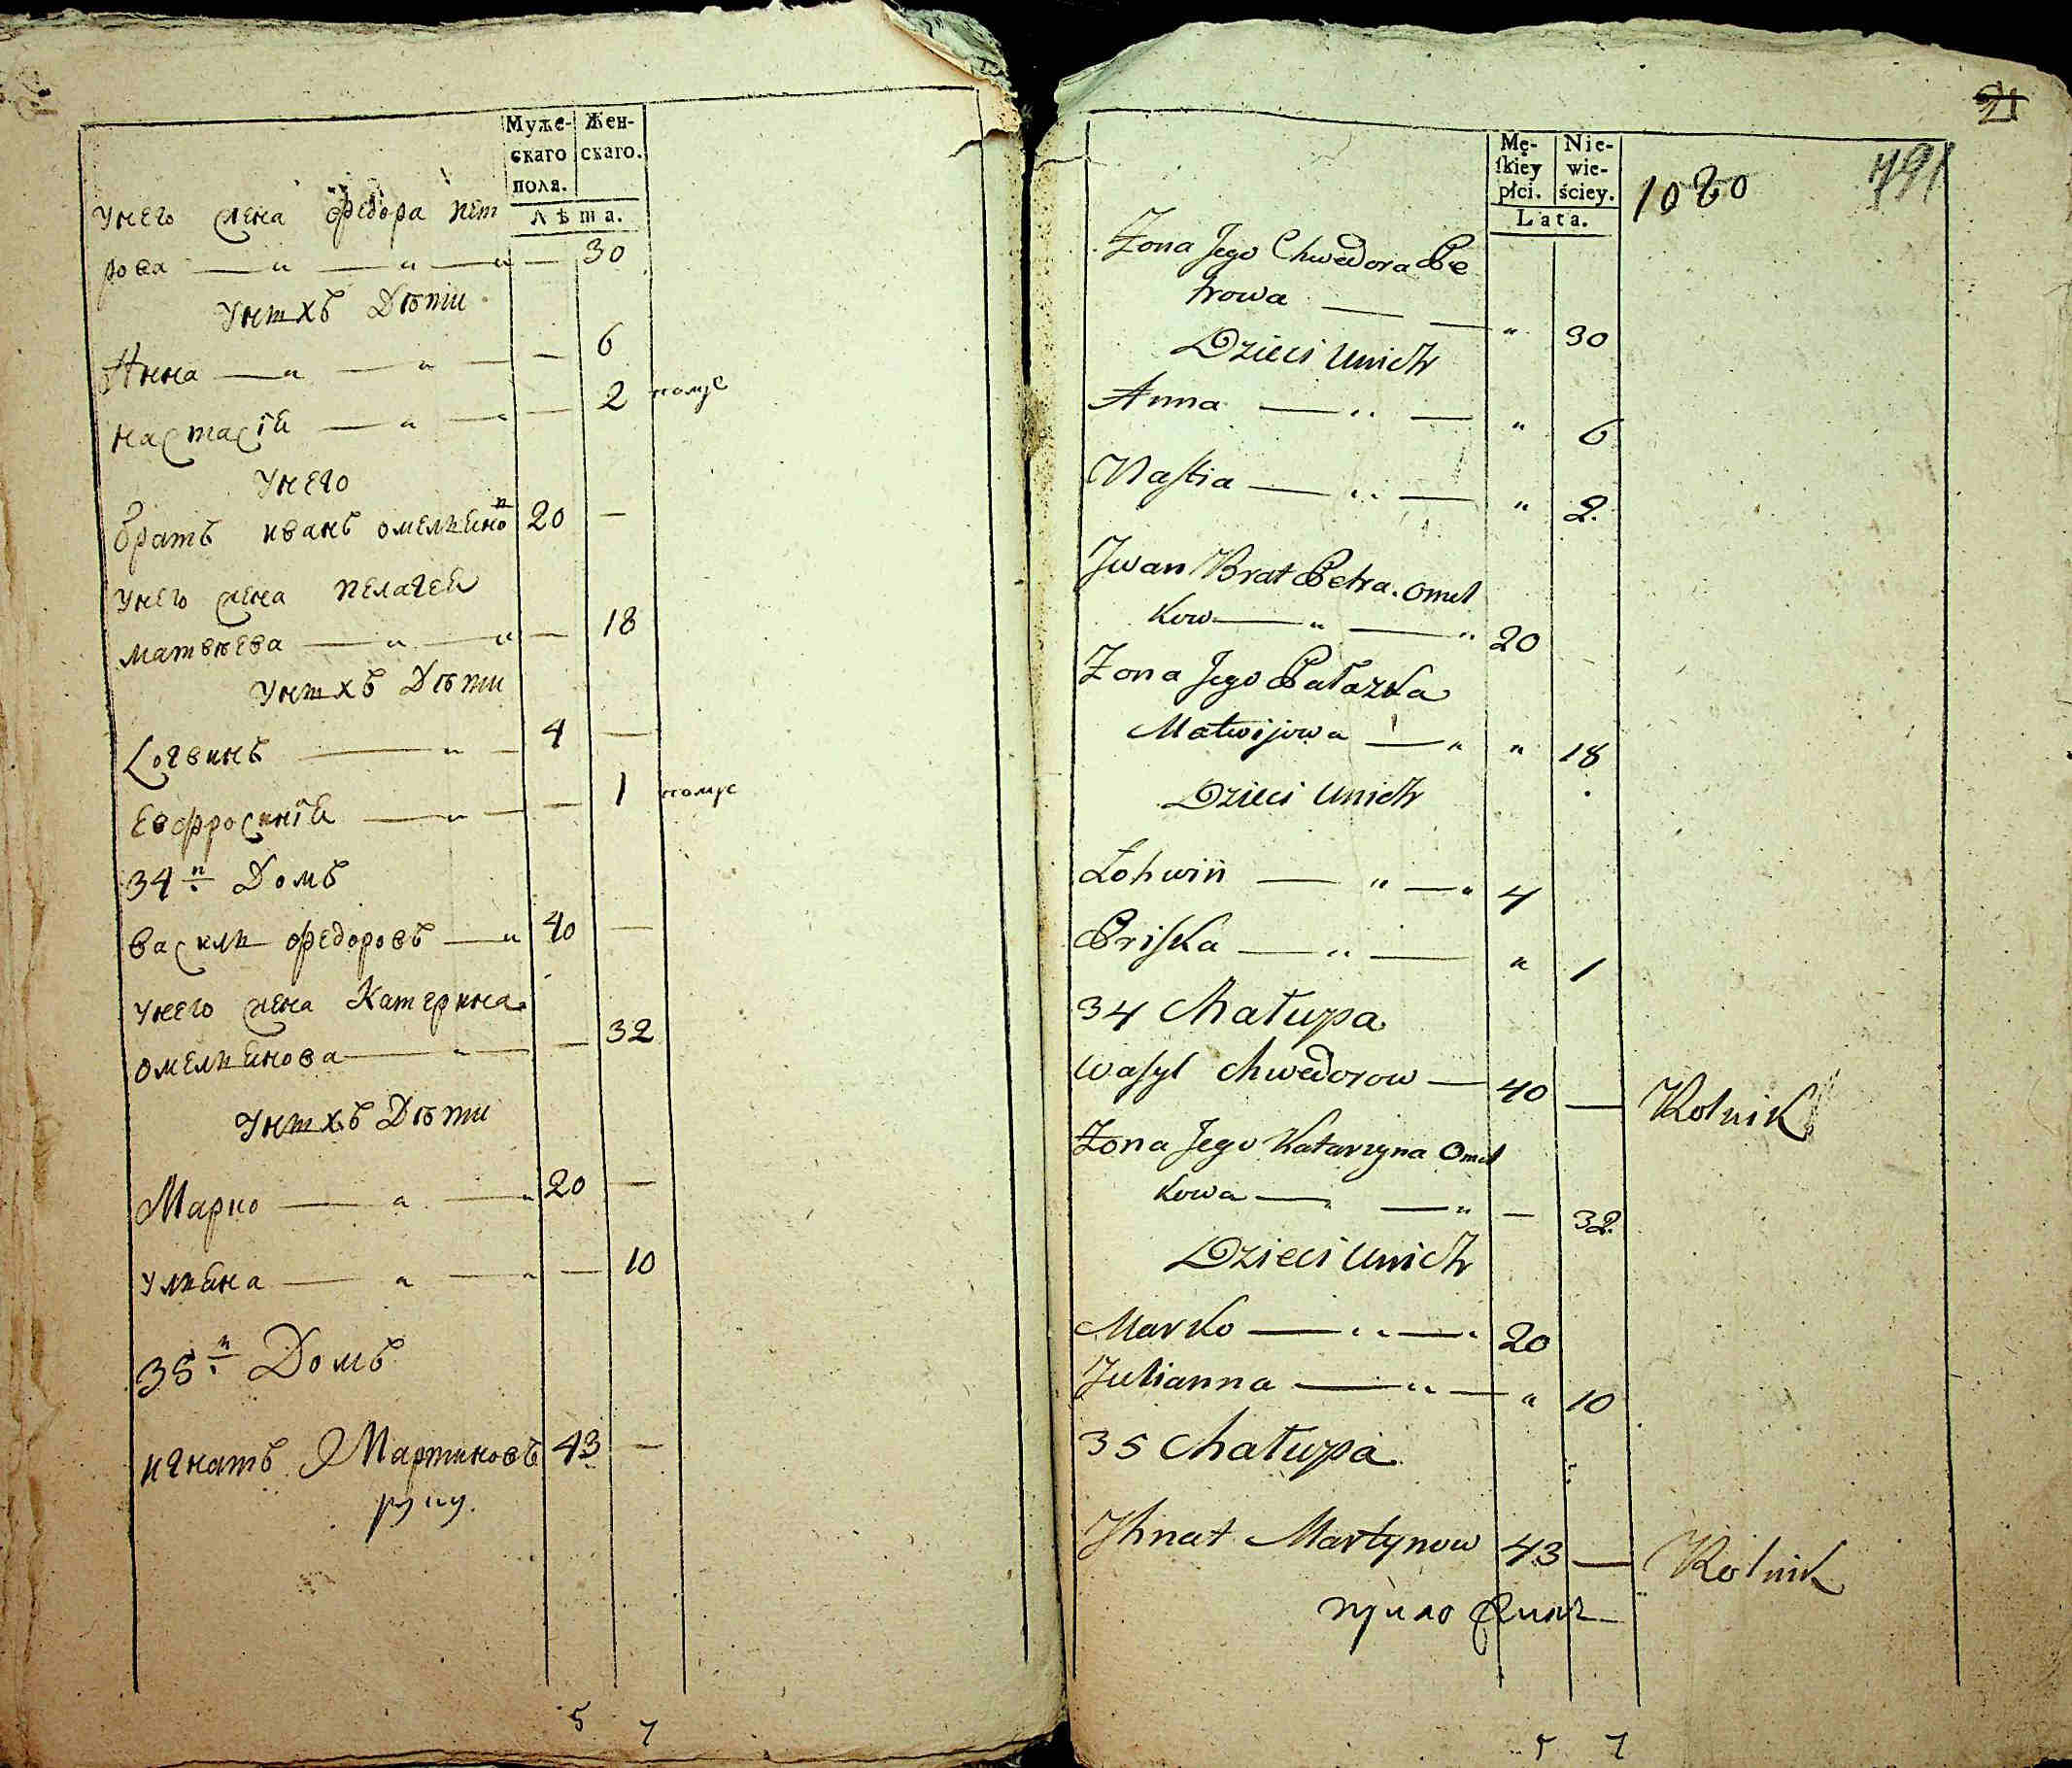 Муже-
скаго
пола.
Жен-
скаго.
Лѣта.
Унего жена Федора пет
рова 30
Унихъ Дѣти
Анна 6
Настасія 2
Унего
братъ иванъ омельяно 20
Унего жена пелагея
матвѣева 18
Унихъ Дѣти
Логвинъ 4
Евфросинія 1
34й Домъ
василь федоровъ 40
Унего жена Катерина
омельянова 32
Унихъ Дѣти
Марко 20
ульяна 10
35й Домъ
игнатъ Мартиновъ 43
руку.
5 7
21
Mę-
skiey
płci.
Nie-
wie-
ściey.
Lata.
1080
791
Żona Jego Chwedora Pe
trowa " 30
Dzieci Unich
Anna " 6
Nastia " 2.
Jwan Brat Petra. Omel
kow 20
Żona Jego Pałazka
Matwijowa " 18
Dzieci Unich
Łohwin 4
Priska " 1
34 Chałupa
Wasyl Chwedorow 40 — Rolnik
Żona Jego Katarzyna Omel
kowa — 32
Dzieci Unich
Marko 20
Julianna " 10
35 Chałupa
Jhnat Martynow 43 — Rolnik
5 7